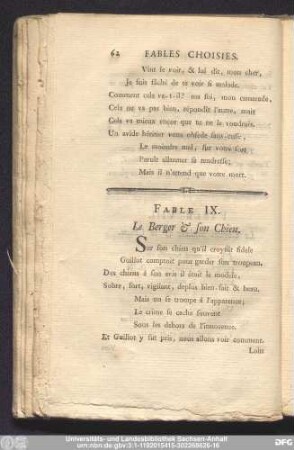 62 FABLES CHOISIES.
Vint le voir, & lui dit, mon cher,
Je suis fâché de te voir si malade.
Comment cela va-t-il? ma foi, mon camarade,
Cela ne va pas bien, répondit l'autre, mais
Cela va mieux encor que tu ne le voudrois.
Un avide héritier vous obsède sans cesse,
Le moindre mal, sur votre sort
Paroît allarmer sa tendresse;
Mais il n'attend que votre mort.
FABLE IX.
Le Berger & son Chien.
Sur son chien qu'il croyoit fidèle
Guillot comptoit pour garder son troupeau.
Des chiens à son avis il étoit le modèle,
Sobre, fort, vigilant, depuis bien fait & beau.
Mais on se trompe à l'apparence;
Le crime se cache souvent
Sous les dehors de l'innocence.
Et Guillot y fut pris, nous allons voir comment.
Loin
Universitäts- und Landesbibliothek Sachsen-Anhalt
urn:nbn:de:gbv:3:1-1192015415-302268626-16
DFG